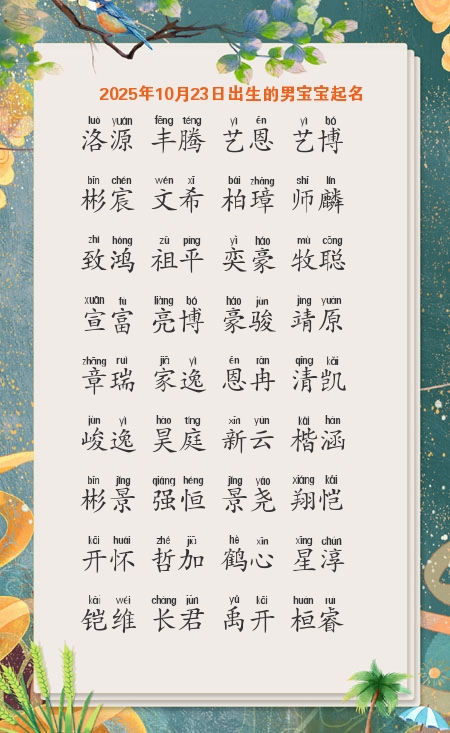 2025年10月23日出生的男宝宝起名
luò yuán fēng téng yì ēn yì bó
洛源 丰腾 艺恩 艺博
bīn chén wén xī bǎi zhāng shī lín
彬宸 文希 柏璋 师麟
zhì hóng zǔ píng yì háo mù cōng
致鸿 祖平 奕豪 牧聪
xuān fù liàng bó háo jùn jìng yuán
宣富 亮博 豪骏 靖原
zhāng ruì jiā yì ēn rǎn qīng kǎi
章瑞 家逸 恩冉 清凯
jùn yì hào tíng xīn yún kǎi hán
峻逸 昊庭 新云 楷涵
bīn jǐng qiáng héng jǐng yáo xiáng kǎi
彬景 强恒 景尧 翔恺
kāi huái zhé jiā hè xīn xīng chún
开怀 哲加 鹤心 星淳
kǎi wéi cháng jūn yǔ kāi huán ruì
铠维 长君 禹开 桓睿